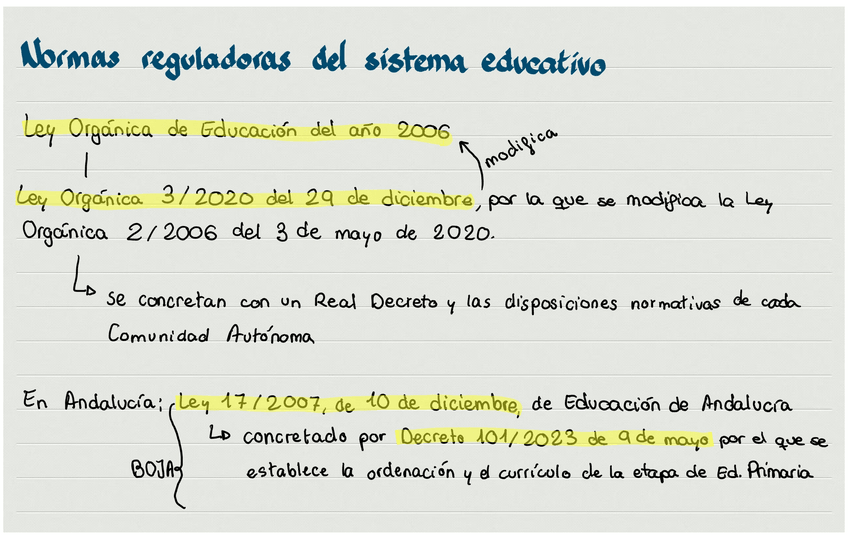 Normas reguladoras del sistema educativo
Ley Orgánica de Educación del año 2006
modifica
Ley Orgánica 3/2020 del 29 de diciembre, por la que se modifica la Ley
Orgánica 2/2006 del 3 de mayo de 2020.
se concretan con un Real Decreto y las disposiciones normativas de cada
Comunidad Autónoma
En Andalucía: Ley 17/2007, de 10 de diciembre, de Educación de Andalucía
concretado por Decreto 101/2023 de 9 de mayo por el que se
BOJA establece la ordenación y el currículo de la etapa de Ed. Primaria